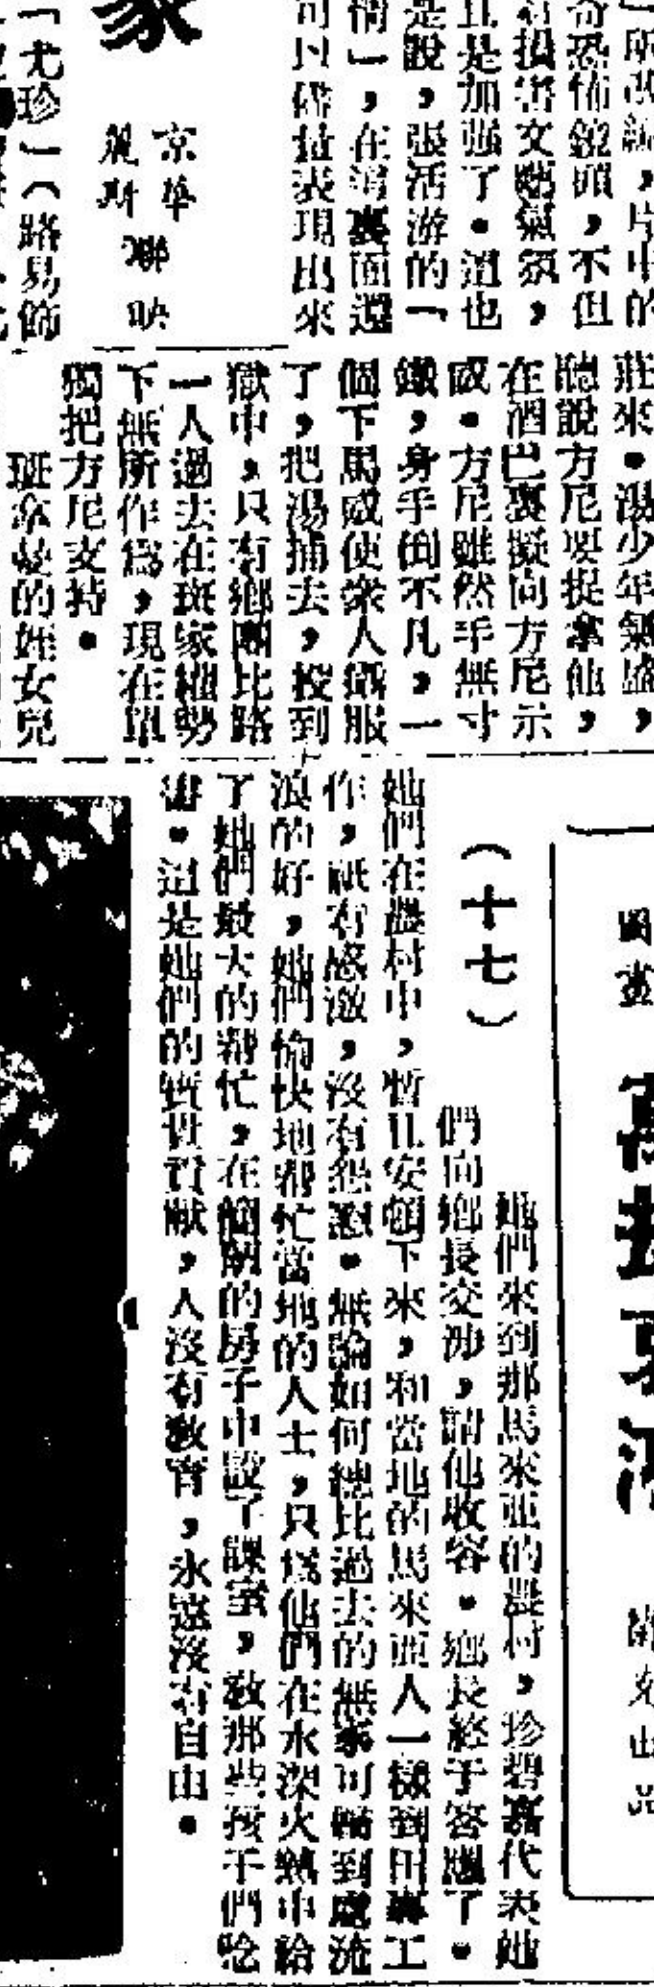 」所改編，片中的
奇恐怖鏡頭，不但
有損害文藝氣氛，
且是加強了。這也
是說，張活游的「
情」，在這裏面還
可以儘量表現出來
家
京華
麗斯
聯映
「尤珍」（路易飾
莊來。湯少年氣盛，
聽說方尼要捉拿他，
在酒巴裏擬向方尼示
威。方尼雖然手無寸
鐵，身手倒不凡，一
個下馬威使衆人懾服
了，把湯捕去，投到
獄中，只有鄉團比路
一人過去在斑家繼勢
下無所作爲，現在單
獨把方尼支持。
斑拿曼的姪女兒
圖畫
南
出品
（十七）
她們來到那馬來亞的農村，珍碧嘉代表她
們向鄉長交涉，請他收容。鄉長終于答應了。
她們在農村中，暫且安頓下來，和當地的馬來亞人一樣到田裏工
作，祇有感激，沒有怨懟。無論如何總比過去的無家可歸到處流
浪的好，她們愉快地幫忙當地的人士，只爲他們在水深火熱中給
了她們最大的幫忙，在簡陋的房子中設了課室，教那些孩子們唸
書。這是她們的實貴貢獻，人沒有教育，永遠沒有自由。